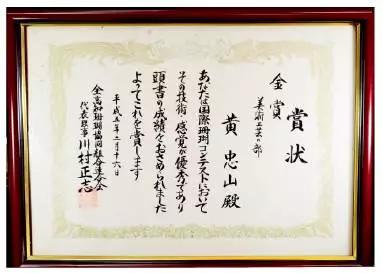 賞状
金賞
美術工芸の部
黄忠山殿
あなたは国際珊瑚コンテストにおいて
その技術感覚が優秀であり
頭書の成績をおさめられました
よってこれを賞します
平成五年二月十六日
全高知珊瑚協同組合連合会
代表理事川村正志